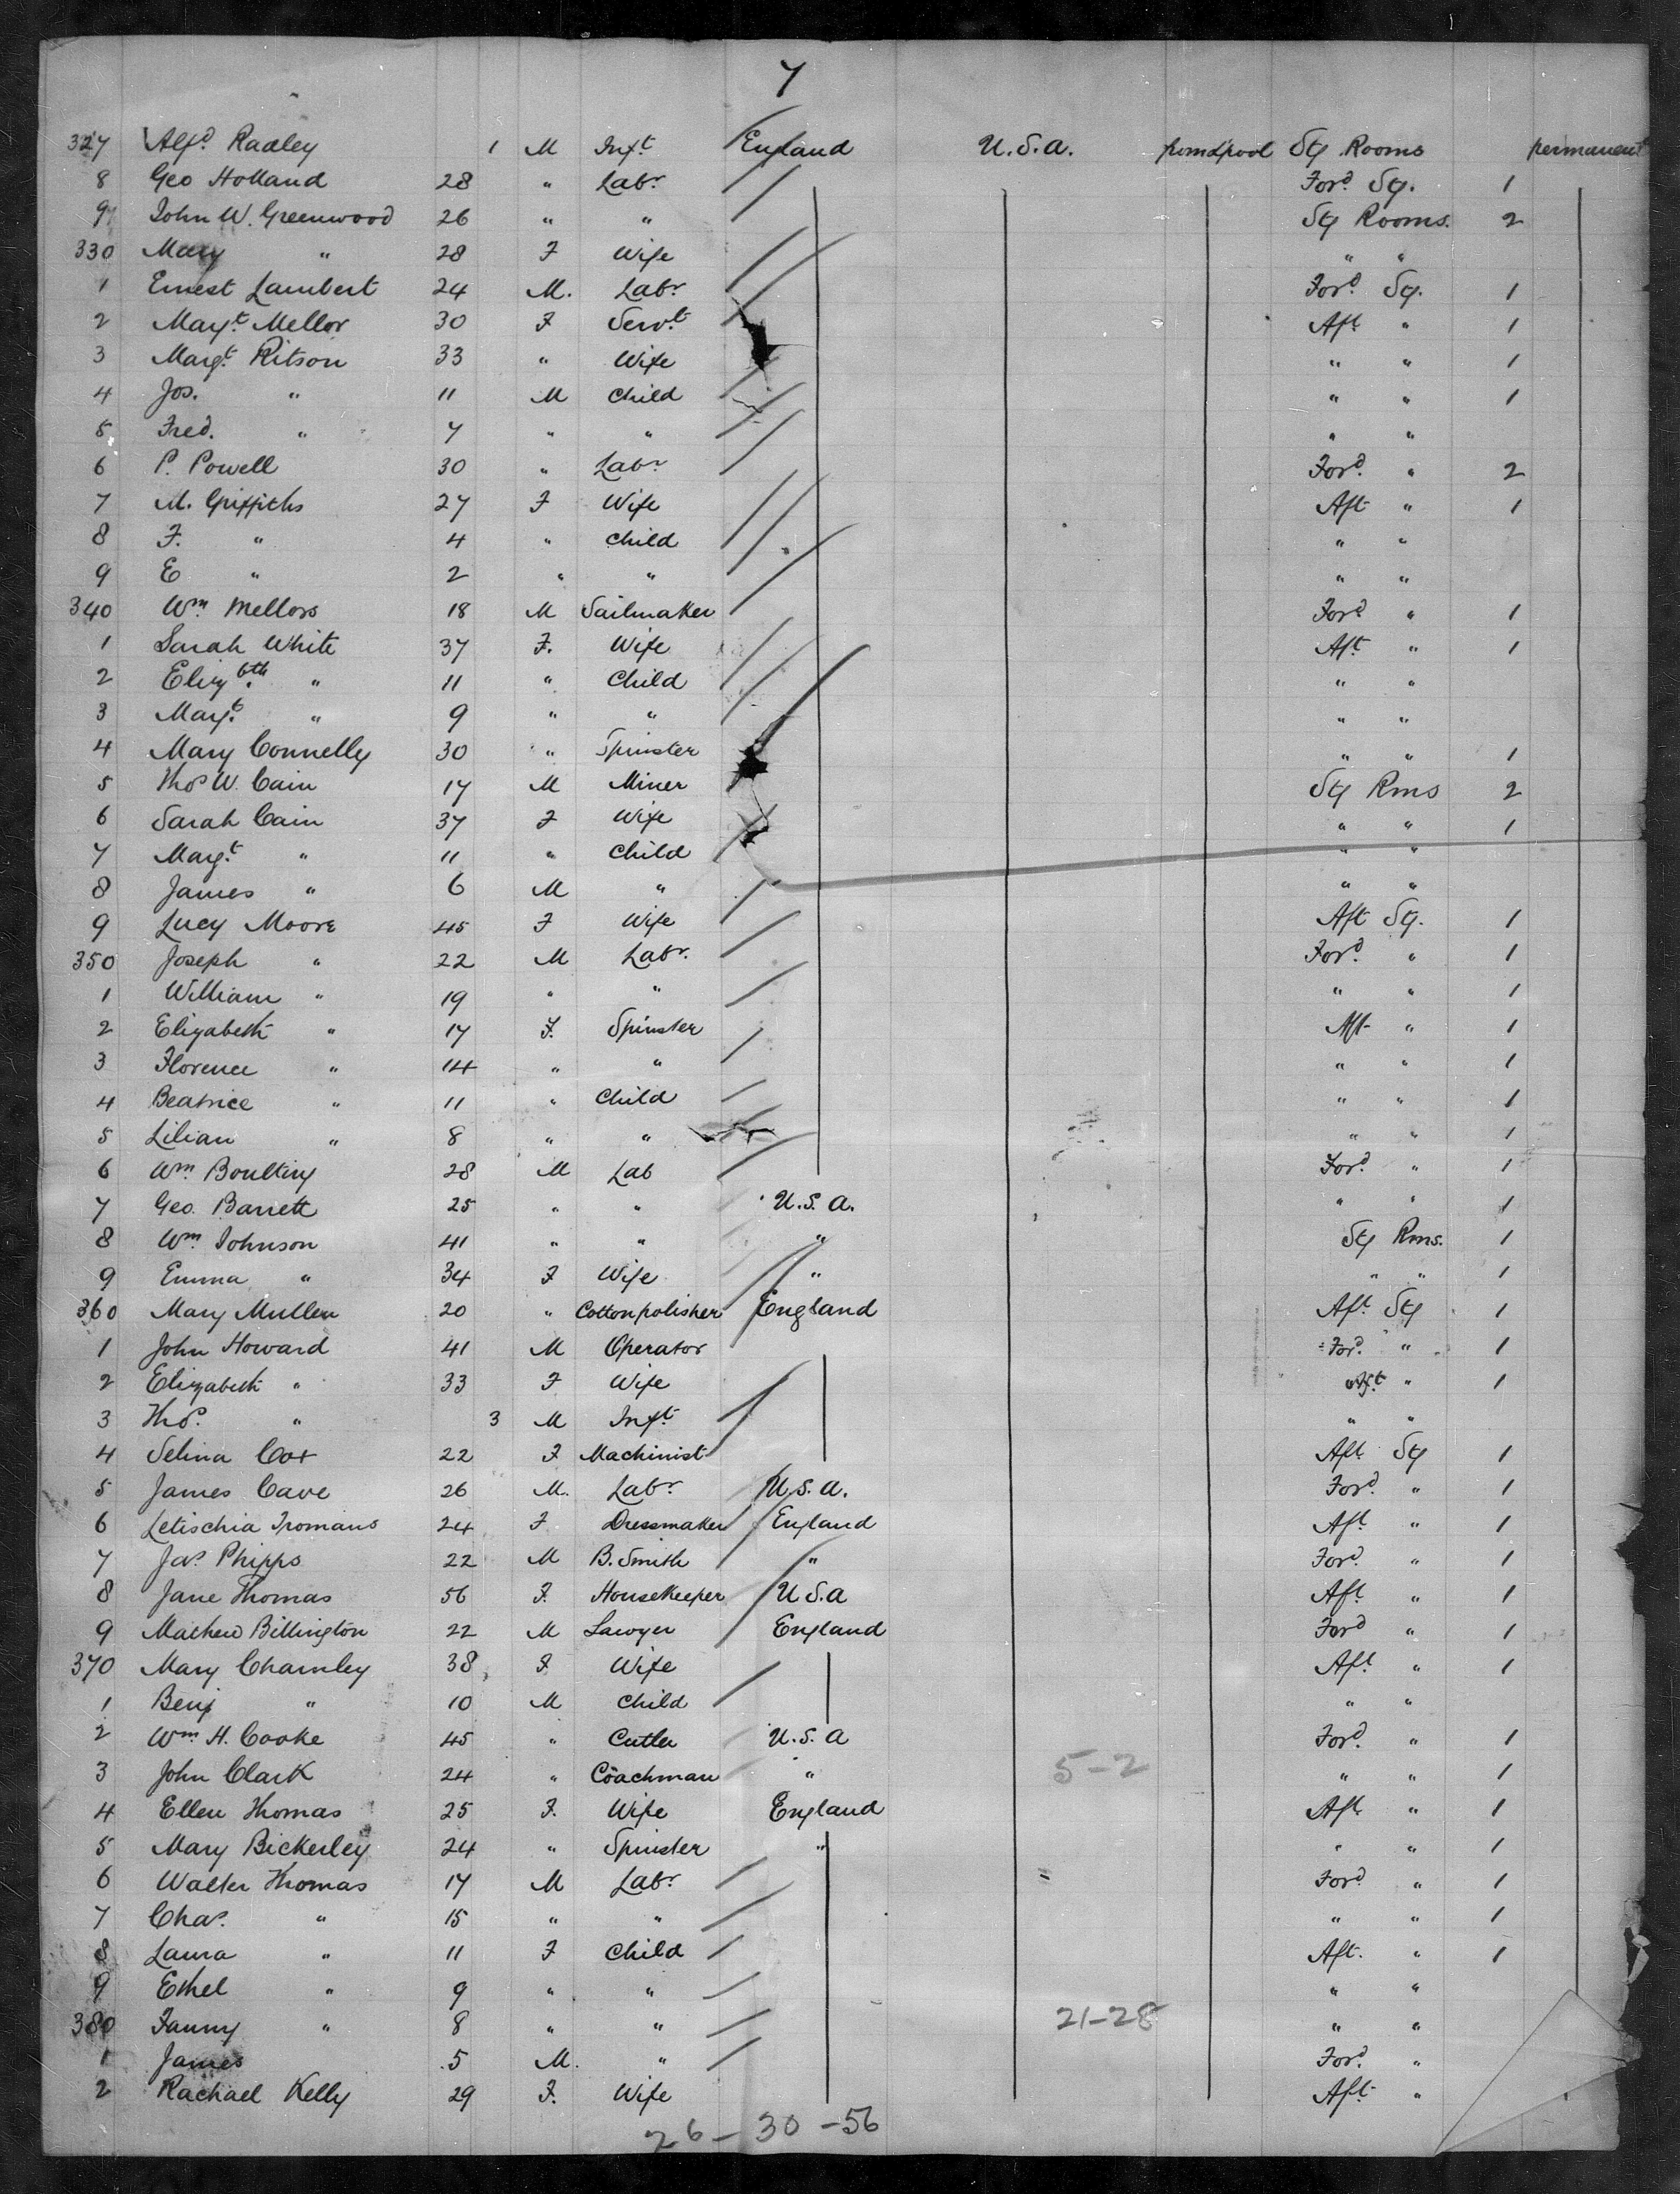 7
327 Alfd. Radley 1 M Inft. England U.S.A. Stg Rooms permanent
8 Geo Holland 28 " Labr. Ford. Stg. 1
9 John W. Greenwood 26 " " Stg Rooms. 2
330 Mary " 28 F Wife " "
1 Ernest Lambert 24 M. Labr. Ford. Stg. 1
2 Margt. Mellor 30 F Servt. Aft " 1
3 Margt. Ritson 33 " Wife " " 1
4 Jos. " 11 M Child " " 1
5 Fred. " 7 " " " "
6 P. Powell 30 " Labr. Ford. " 2
7 M. Griffiths 27 F Wife Aft " 1
8 F. " 4 " Child " "
9 E " 2 " " " "
340 Wm Mellors 18 M Sailmaker Ford. " 1
1 Sarah White 37 F. Wife Aft. " 1
2 Elizbth. " 11 " Child " "
3 Margt. " 9 " " " "
4 Mary Connelly 30 " Spinster " " 1
5 Thos W. Cain 17 M Miner Stg Rms 2
6 Sarah Cain 37 F Wife " " 1
7 Margt. " 11 " Child " "
8 James " 6 M " " "
9 Lucy Moore 45 F Wife Aft Stg. 1
350 Joseph " 22 M Labr. Ford. " 1
1 William " 19 " " " " 1
2 Elizabeth " 17 F. Spinster Aft " 1
3 Florence " 14 " " " " 1
4 Beatrice " 11 " Child " " 1
5 Lilian " 8 " " " " 1
6 Wm. Boulting 28 M Lab Ford. " 1
7 Geo. Barrett 25 " " U.S.A. " " 1
8 Wm. Johnson 41 " " " Stg Rms. 1
9 Emma " 34 F Wife " " " 1
360 Mary Mullen 20 " Cottonpolisher England Aft. Stg 1
1 John Howard 41 M Operator Ford. " 1
2 Elizabeth " 33 F Wife Aft " 1
3 Thos. " 3 M Inft. " "
4 Selina Cox 22 F Machinist Aft. Stg 1
5 James Cave 26 M. Labr. U.S.A. Ford. " 1
6 Letischia 24 F Dressmaker England Aft. " 1
7 Jas. Phipps 22 M B. Smith " Ford. " 1
8 Jane Thomas 56 F. Housekeeper U.S.A Aft. " 1
9 Mathew Billington 22 M Lawyer England Ford " 1
370 Mary Charnley 38 F. Wife Aft. " 1
1 Benj " 10 M Child " "
2 Wm. H. Cooke 45 " Cutler U.S.A Ford. " 1
3 John Clark 24 " Coachman " 5-2 " " 1
4 Ellen Thomas 25 F. Wife England Aft. " 1
5 Mary Bickerley 24 " Spinster " " " 1
6 Walter Thomas 17 M Labr. Ford. " 1
7 Chas. " 15 " " " " 1
8 Laura " 11 F Child Aft. " 1
9 Ethel " 9 " " " "
380 Fanny " 8 " " 21-28 " "
1 James 5 M. " Ford. "
2 Rachael Kelly 29 F. Wife Aft. "
26-30-56